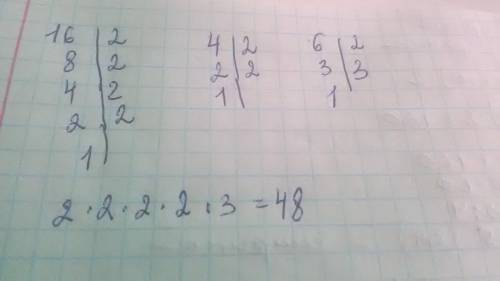 16 | 2 4 | 2 6 | 2
8 | 2 2 | 2 3 | 3
4 | 2 1 | 1 |
2 | 2
1 |
2 · 2 · 2 · 2 · 3 = 48